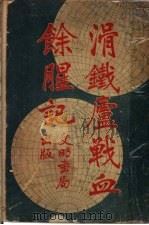 滑鐵盧戰血
餘腥記
文明書局
出版